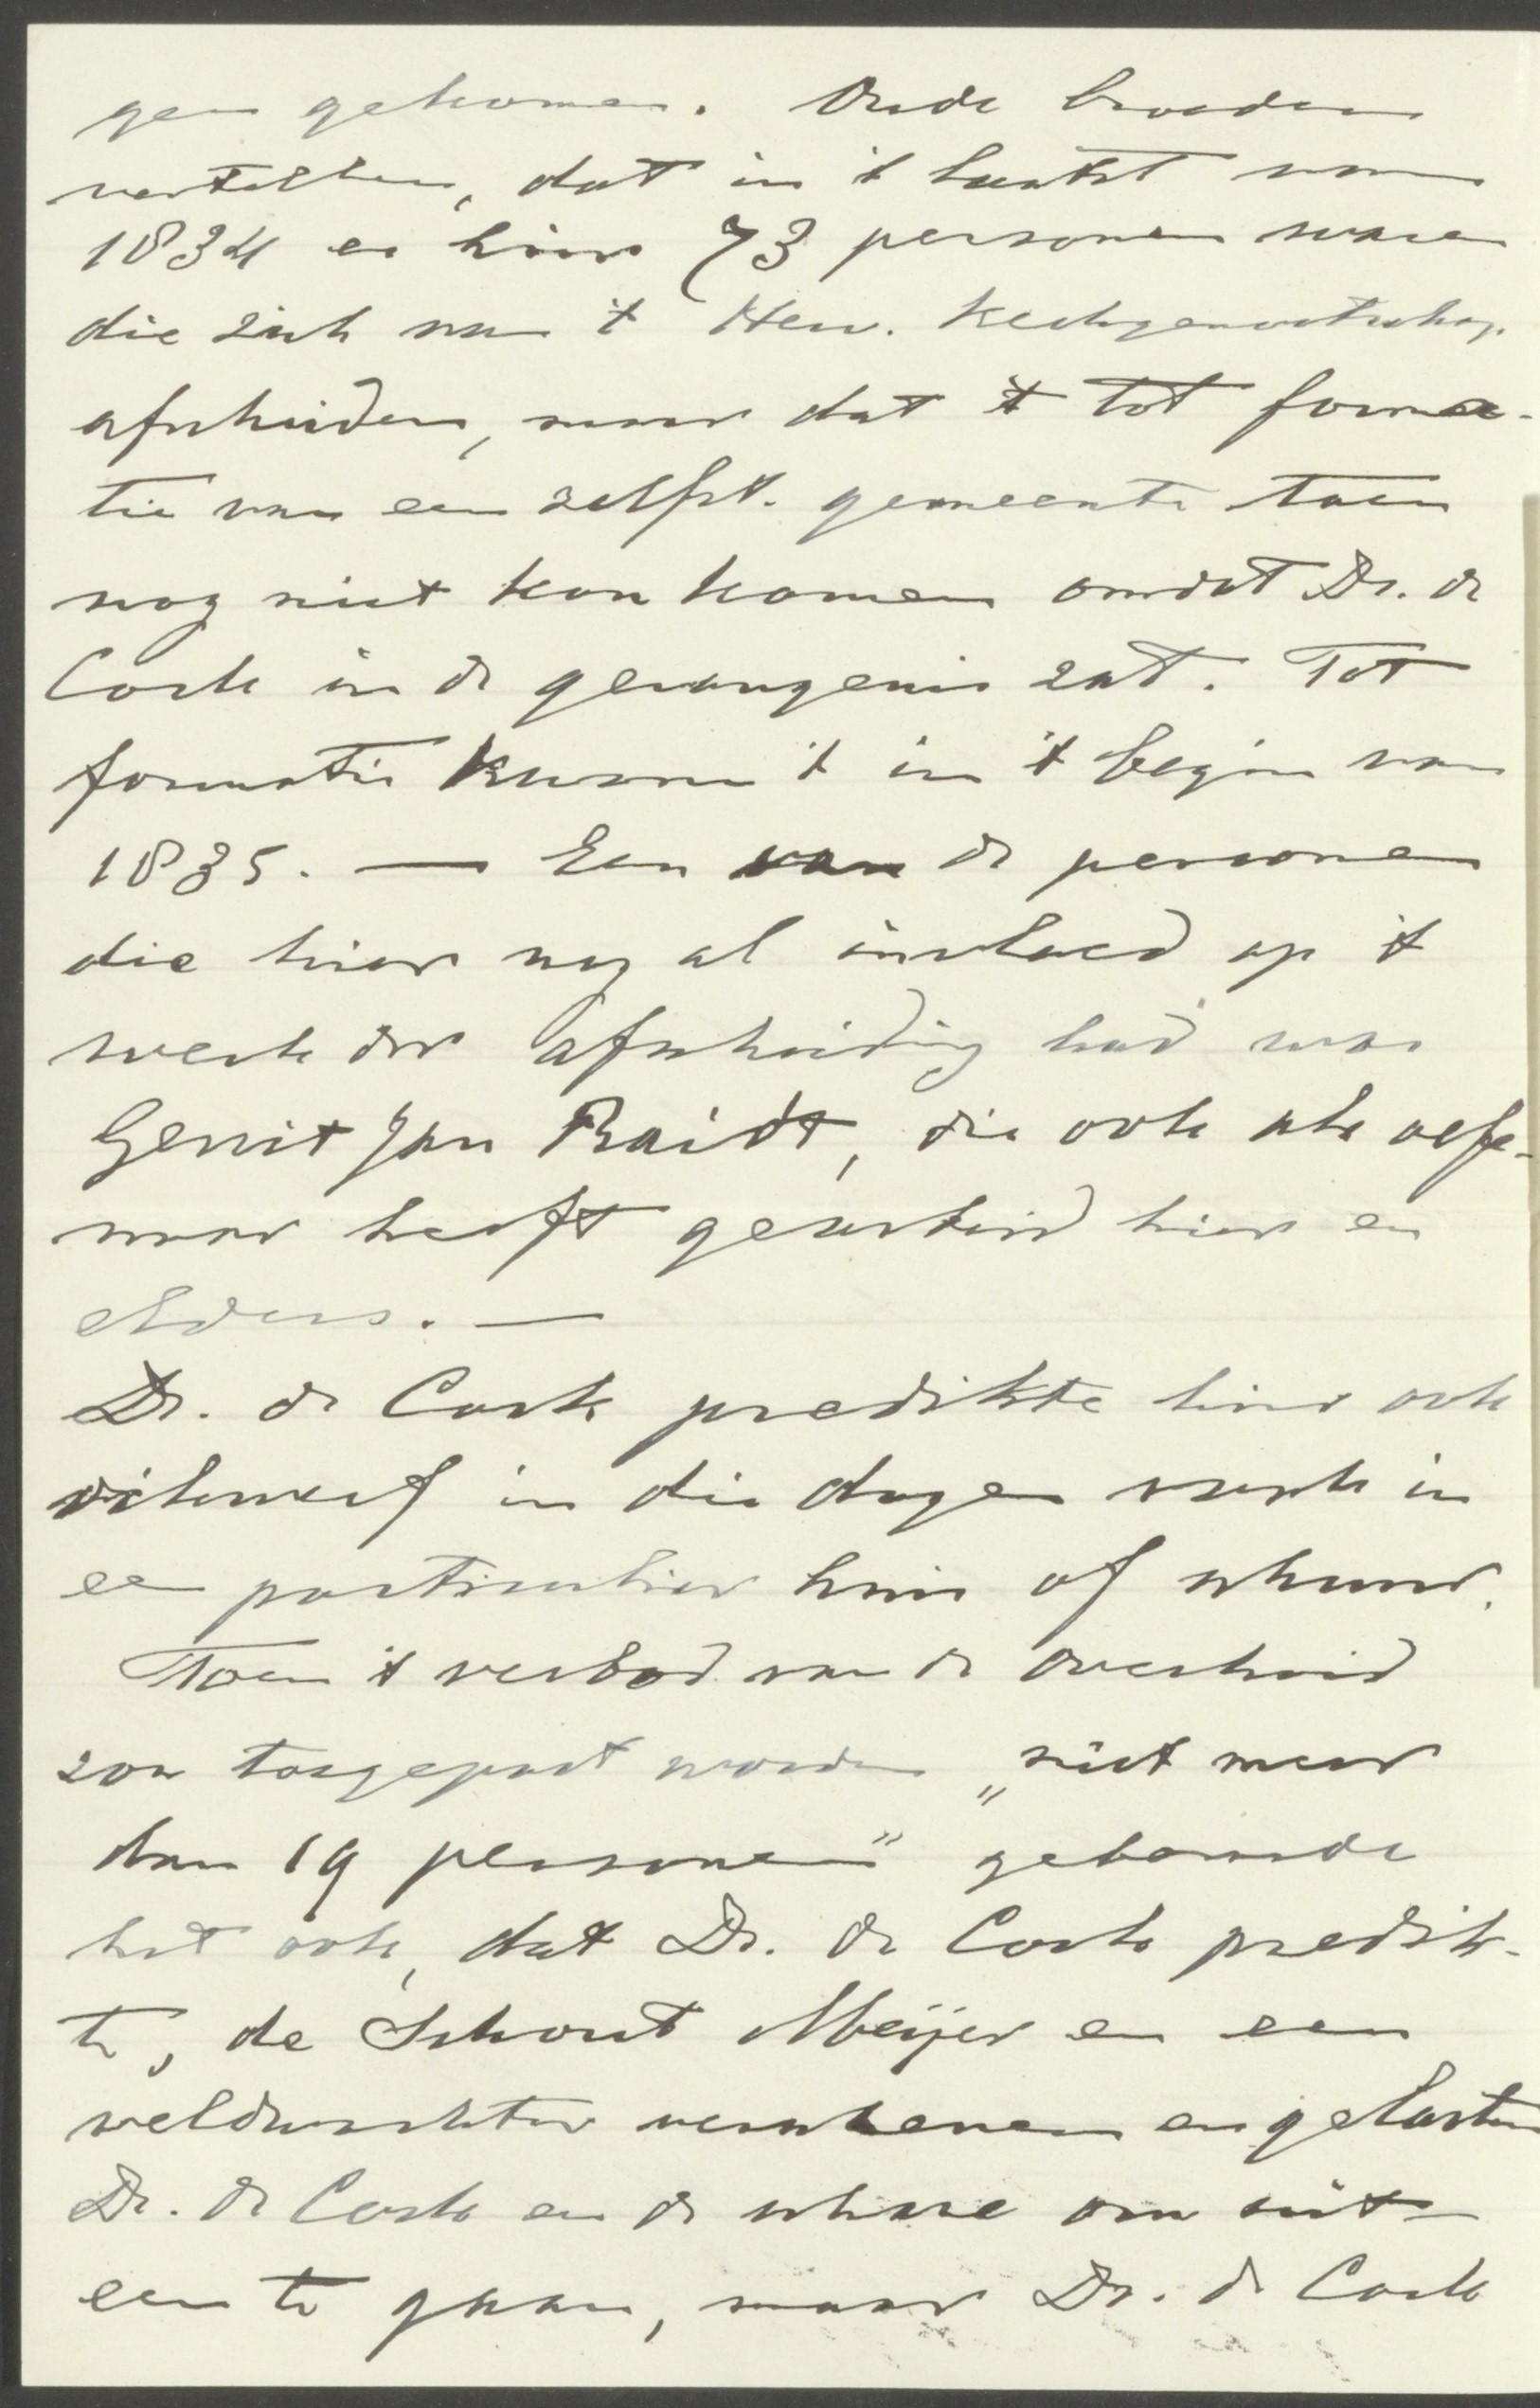 gen gekomen. Oude broeders
vertellen, dat in 't laatst van
1834 er hier 73 personen waren
die zich van 't Herv. Kerkgenootschap
afscheidden, maar dat 't tot forma-
tie van een zelfst. gemeente toen
nog niet kon komen omdat Ds. de
Cock in de gevangenis zat. Tot
formatie kwam 't in 't begin van
1835. — Een van de personen
die hier nog al invloed op 't
werk der afscheiding had was
Gerrit Jan Raidt, die ook als oefe-
naar heeft gearbeid hier en
elders. —
Ds. de Cock predikte hier ook
dikwerf in die dagen vaak in
een particulier huis of schuur.
Toen 't verbod van de overheid
zou toegepast worden „niet meer
dan 19 personen" gebeurde
het ook, dat Ds. de Cock predik-
te, de Schout Meijer en een
veldwachter verschenen en gelastten
Ds. de Cock en de schare om uit-
een te gaan, maar Ds. de Cock